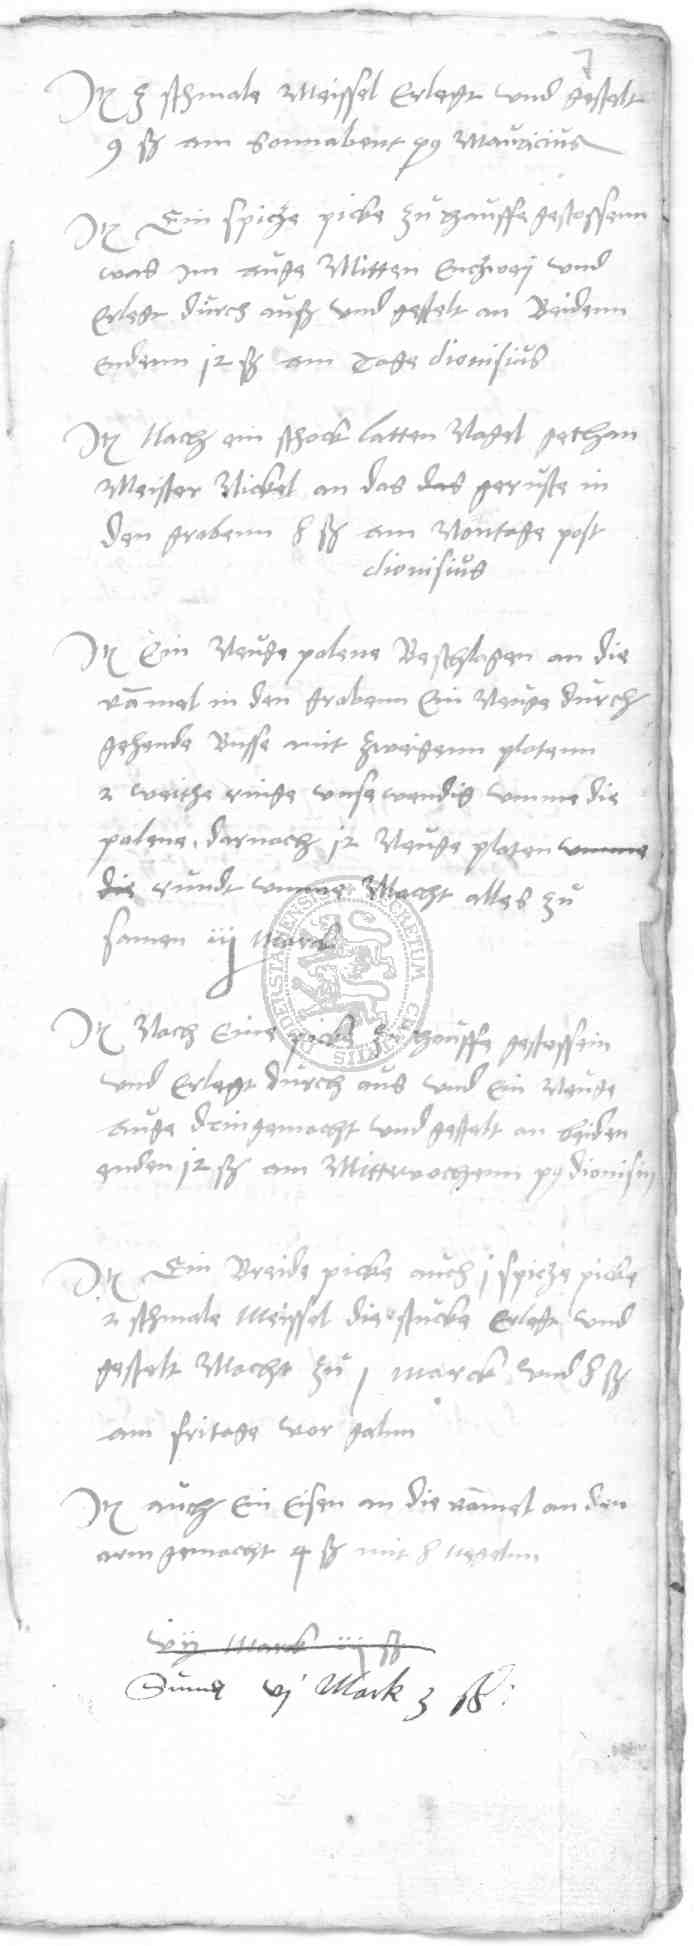 7
Itz 3 schmale Meissel Erlegt vnd gestelt
9 ß am Sonnabent p9 Mauricius
Itz Ein spicze picke zu hauffe gestossenn
was Im auge Mitten Enczwej vnd
Erlegt durch auß vnd gestelt an Beidenn
Endenn 12 ß am Tage dionisius
Itz Nach ein schock latten Nagel gethan
Meister Nickel an das das geruste in
den grabenn 8 ß am Montage post
dionisius
Itz Ein Neuge polene Beschlagen an die
rammel in den grabenn Ein Neuge durch
gehende Busse mit zweigenn platenn
2 weiche ringe vnse wendig vmme die
polene darnach 12 Neuge platen vmme
die rundt vmme Macht alles zu
samen iij Marck
Itz Nach Eine picke zu hauffe gestossein
vnd Erlegt durch aus vnd Ein Neuge
auge drin gemacht vnd gestelt an beiden
enden 12 ß am Mittewochenn p9 dionisij
Itz Ein Breide picke auch j spicze picke
2 schmale Meissel die stucke Erlegt vnd
gestelt Macht zu j marck vnd 8 ß
am fritage vor galln
Itz auch Ein Eisen an die ramel an den
arm gemacht 4 ß mit 8 Negelnn
vij Marck iij ß
Suma vj Mark 3 ß